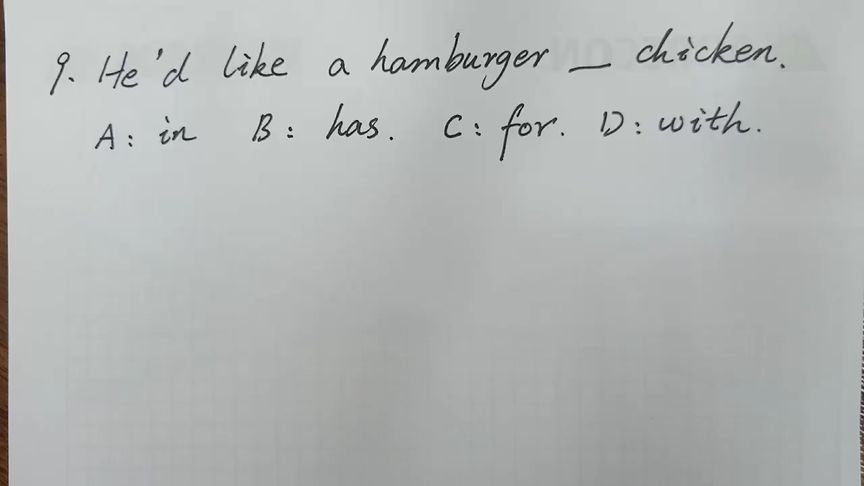 9. He'd like a hamburger __ chicken.
A: in B: has. C: for. D: with.